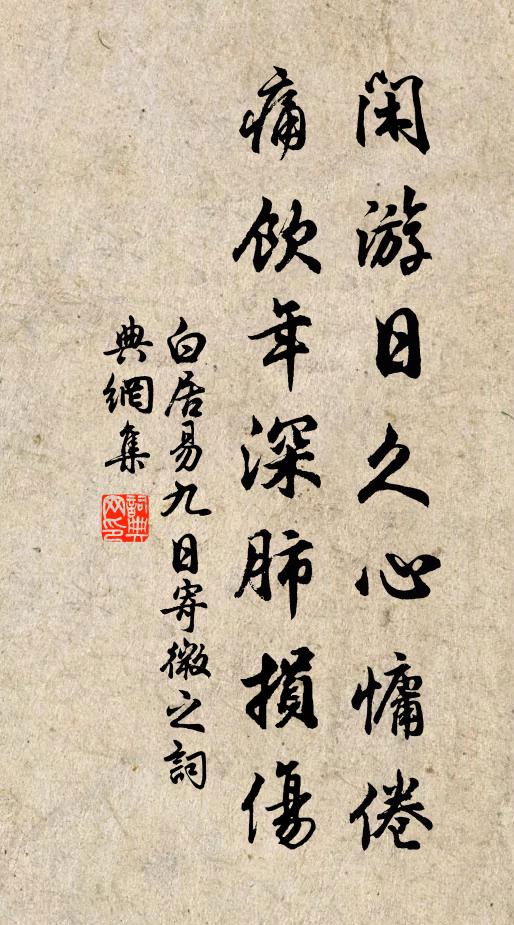 闲游日久心慵倦
痛飲年深肺損傷
白居易九日寄微之詞
典網集
詞典
网印